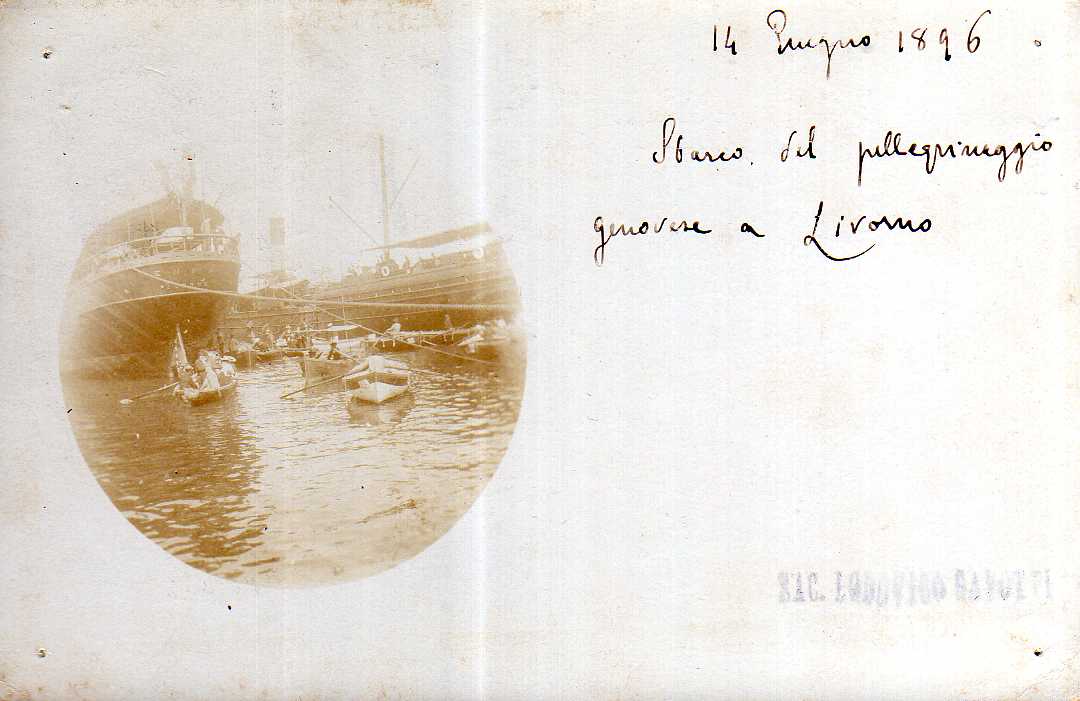 14 Giugno 1896
Sbarco del pellegrinaggio
genovese a Livorno
SAC. LODOVICO